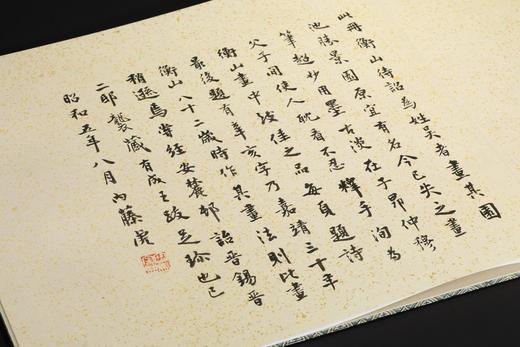 此冊衡山待詔為姓吳者畫其園
池勝景園原宜有名今已失之畫
筆超妙用墨古淡在子昂仲穆
父子間使人玩看不忍釋手洵為
衡山畫中佳之品每頁題詩
最後題有辛亥字乃嘉靖三十年
衡山八十二歲時作其畫法則此畫
稍遜焉曾經安麓邨詒晉錫晉
二邸襲藏有成王跋足珍也已
昭和五年八月內藤虎